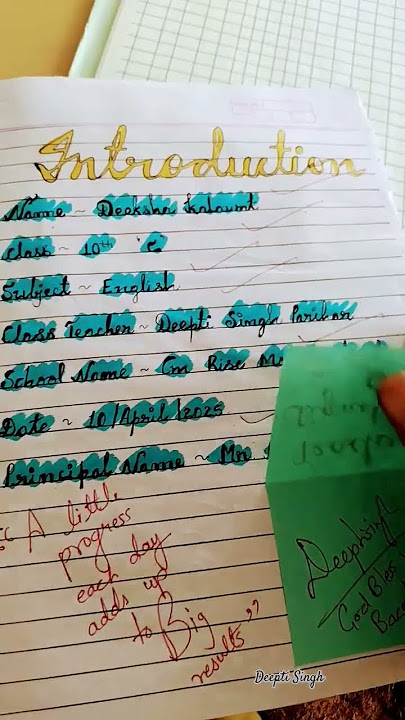 Introduction
Name ~ Deeksha Kalawnt
Class ~ 10th C
Subject ~ English
Class Teacher ~ Deepti Singh Parihar
School Name ~ Cm Rise
Date ~ 10/April/2025
Principal Name ~ Mr
“ A little
progress
each day
adds up
to Big
results”
God Bless
Deepti Singh